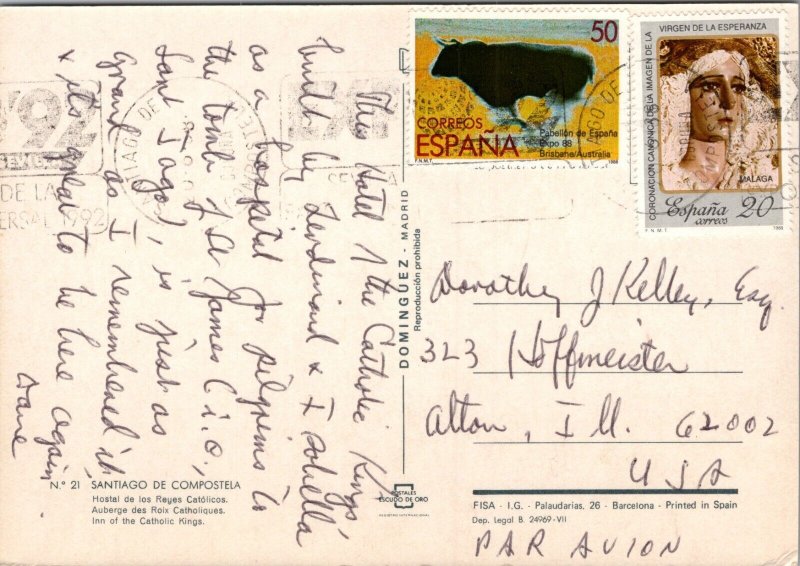 This Hotel of the Catholic Kings'
built by Ferdinand & Isabella
as a hospital for pilgrims to
the tomb of St James (i.e.,
Sant Iago), is just as
grand as I remembered it
& its great to be here again.
Jane
Nº 21 SANTIAGO DE COMPOSTELA
Hostal de los Reyes Católicos.
Auberge des Roix Catholiques.
Inn of the Catholic Kings.
DOMINGUEZ - MADRID
Reproducción prohibida
POSTALES
ESCUDO DE ORO
REGISTRO INTERNACIONAL
50
CORREOS
ESPAÑA
Pabellón de España
Expo 88
Brisbane/Australia
F.N.M.T.
1988
CORONACION CANONICA DE LA IMAGEN DE LA
VIRGEN DE LA ESPERANZA
MALAGA
España 20
correos
F.N.M.T.
1988
92
DE LA
ERSAL 1992
Dorothy J Kelley, Esq.
323 Hoffmeister
Alton, Ill. 62002
USA
FISA - I.G. - Palaudarias, 26 - Barcelona - Printed in Spain
Dep. Legal B. 24969-VII
PAR AVION